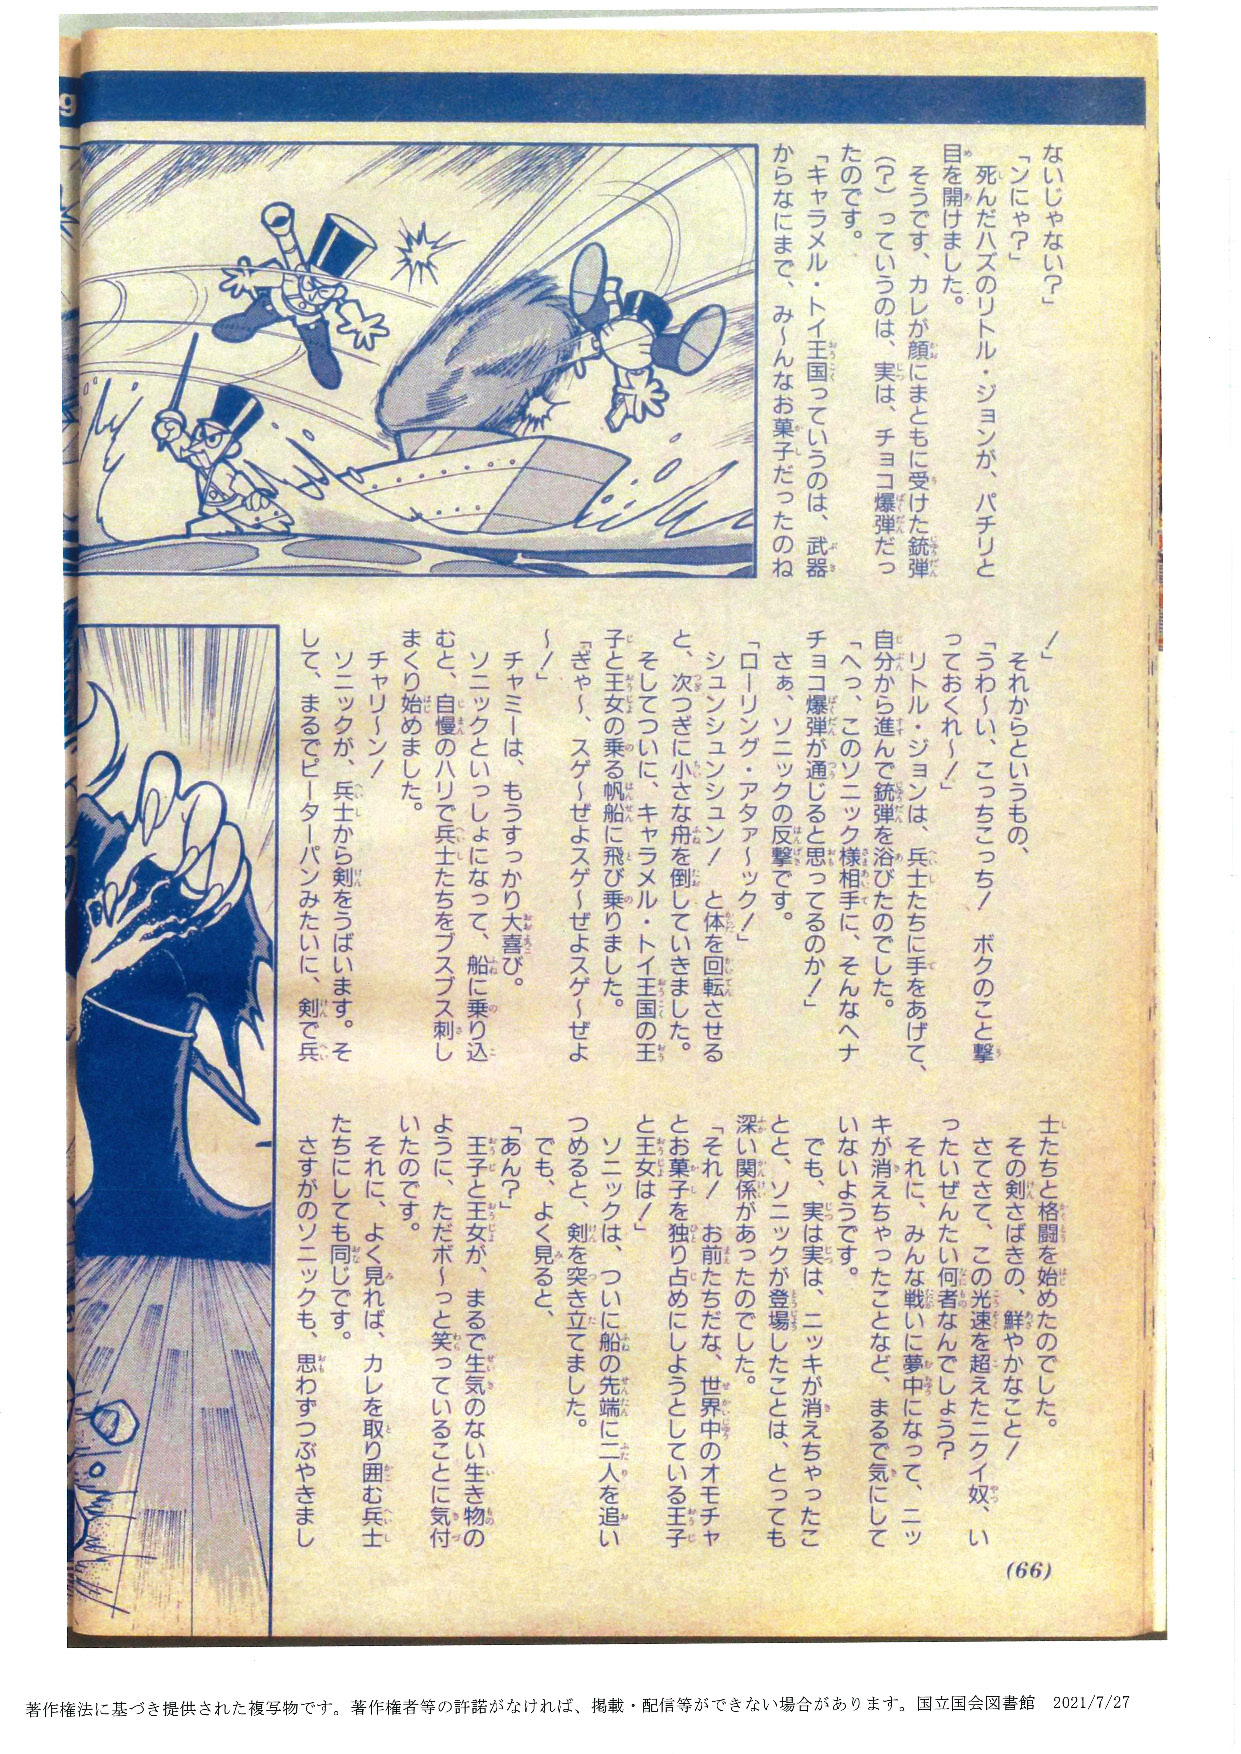 g
ないじゃない？」
「ンにゃ？」
　死んだハズのリトル・ジョンが、パチリと
目を開けました。
　そうです、カレが顔にまともに受けた銃弾
（？）っていうのは、実は、チョコ爆弾だっ
たのです。
「キャラメル・トイ王国っていうのは、武器
からなにまで、み〜んなお菓子だったのね
！」
　それからというもの、
「うわ〜い、こっちこっち！　ボクのこと撃
っておくれ〜！」
　リトル・ジョンは、兵士たちに手をあげて、
自分から進んで銃弾を浴びたのでした。
「へっ、このソニック様相手に、そんなヘナ
チョコ爆弾が通じると思ってるのか！」
　さぁ、ソニックの反撃です。
「ローリング・アタァ〜ック！」
　シュンシュンシュン！　と体を回転させる
と、次つぎに小さな舟を倒していきました。
　そしてついに、キャラメル・トイ王国の王
子と王女の乗る帆船に飛び乗りました。
「ぎゃ〜、スゲ〜ぜよスゲ〜ぜよスゲ〜ぜよ
〜！」
　チャミーは、もうすっかり大喜び。
　ソニックといっしょになって、船に乗り込
むと、自慢のハリで兵士たちをブスブス刺し
まくり始めました。
　チャリ〜ン！
　ソニックが、兵士から剣をうばいます。そ
して、まるでピーターパンみたいに、剣で兵
士たちと格闘を始めたのでした。
　その剣さばきの、鮮やかなこと！
　さてさて、この光速を超えたニクイ奴、い
ったいぜんたい何者なんでしょう？
　それに、みんな戦いに夢中になって、ニッ
キが消えちゃったことなど、まるで気にして
いないようです。
　でも、実は実は、ニッキが消えちゃったこ
とと、ソニックが登場したことは、とっても
深い関係があったのでした。
「それ！　お前たちだな、世界中のオモチャ
とお菓子を独り占めにしようとしている王子
と王女は！」
　ソニックは、ついに船の先端に二人を追い
つめると、剣を突き立てました。
　でも、よく見ると、
「あん？」
　王子と王女が、まるで生気のない生き物の
ように、ただボ〜っと笑っていることに気付
いたのです。
　それに、よく見れば、カレを取り囲む兵士
たちにしても同じです。
　さすがのソニックも、思わずつぶやきまし
(66)
著作権法に基づき提供された複写物です。著作権者等の許諾がなければ、掲載・配信等ができない場合があります。国立国会図書館　2021/7/27